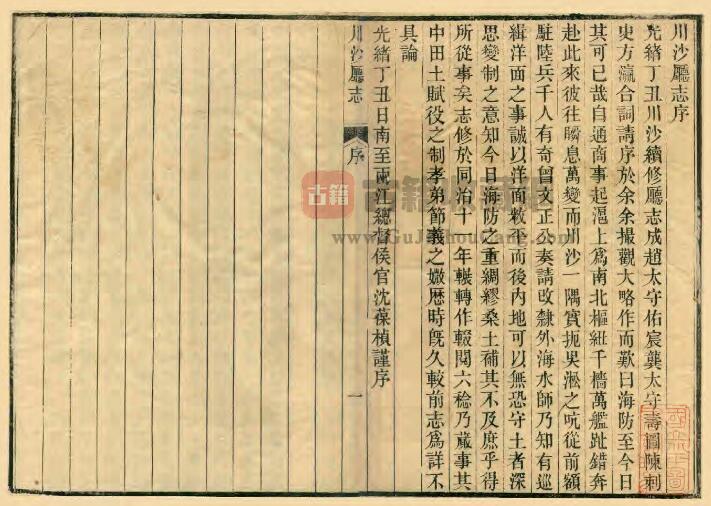 川沙廳志序
光緒丁丑川沙續修廳志成趙太守佑宸龔太守壽圖陳刺
史方瀛合詞請序於余余撮觀大略作而歎曰海防至今日
其可已哉自通商事起滬上爲南北樞紐千檣萬艦趾錯奔
赴此來彼往瞬息萬變而川沙一隅實扼吳淞之吭從前額
駐陸兵千人有奇曾文正公奏請改隸外海水師乃知有巡
緝洋面之事誠以洋面敉平而後內地可以無恐守土者深
思變制之意知今日海防之重綢繆桑土補其不及庶乎得
所從事矣志修於同治十一年輾轉作輟閱六稔乃蕆事其
中田土賦役之制孝弟節義之媺歷時旣久較前志爲詳不
具論
光緒丁丑日南至兩江總督侯官沈葆楨謹序
川沙廳志
序
一
古籍
www.GuJiShouCang.com